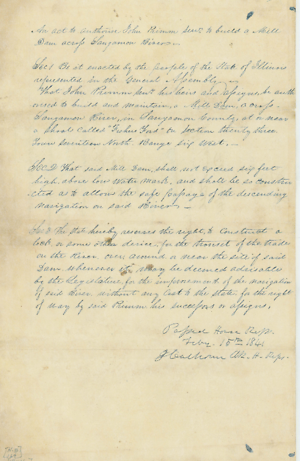 An act to authorize John Pinnon Senr to build a Mill
Dam across Sangamon River.
Sec 1 Be it enacted by the People of the State of Illinois
represented in the General Assembly,
That John Pinnon senr his heirs and assigns be auth
orized to build and maintain, a Mill Dam across
Sangamon River, in Sangamon County, at or near
a shoal called Ford on Section Twenty three
Town Seventeen North. Range six West.
Sec 2 That said Mill Dam, shall not exceed six feet
high, above low water mark, and shall be so construc
cted as to allows the safe passage of the descending
navigation on said River.
Sec 3 The State hereby reserves the right, to construct a
lock, or some other device, for the transit of the trade
on the River over, around or near the site of said
Dam, whenever it may be deemed advisable
by the Legislature, for the improvement of the navigation
of said River, without any cost to the state for the right
of way by said Pinnon his successors or assigns.
Passed House Reps.
Feby. 15th 1841
J Calhoun Clk. H. Reps.